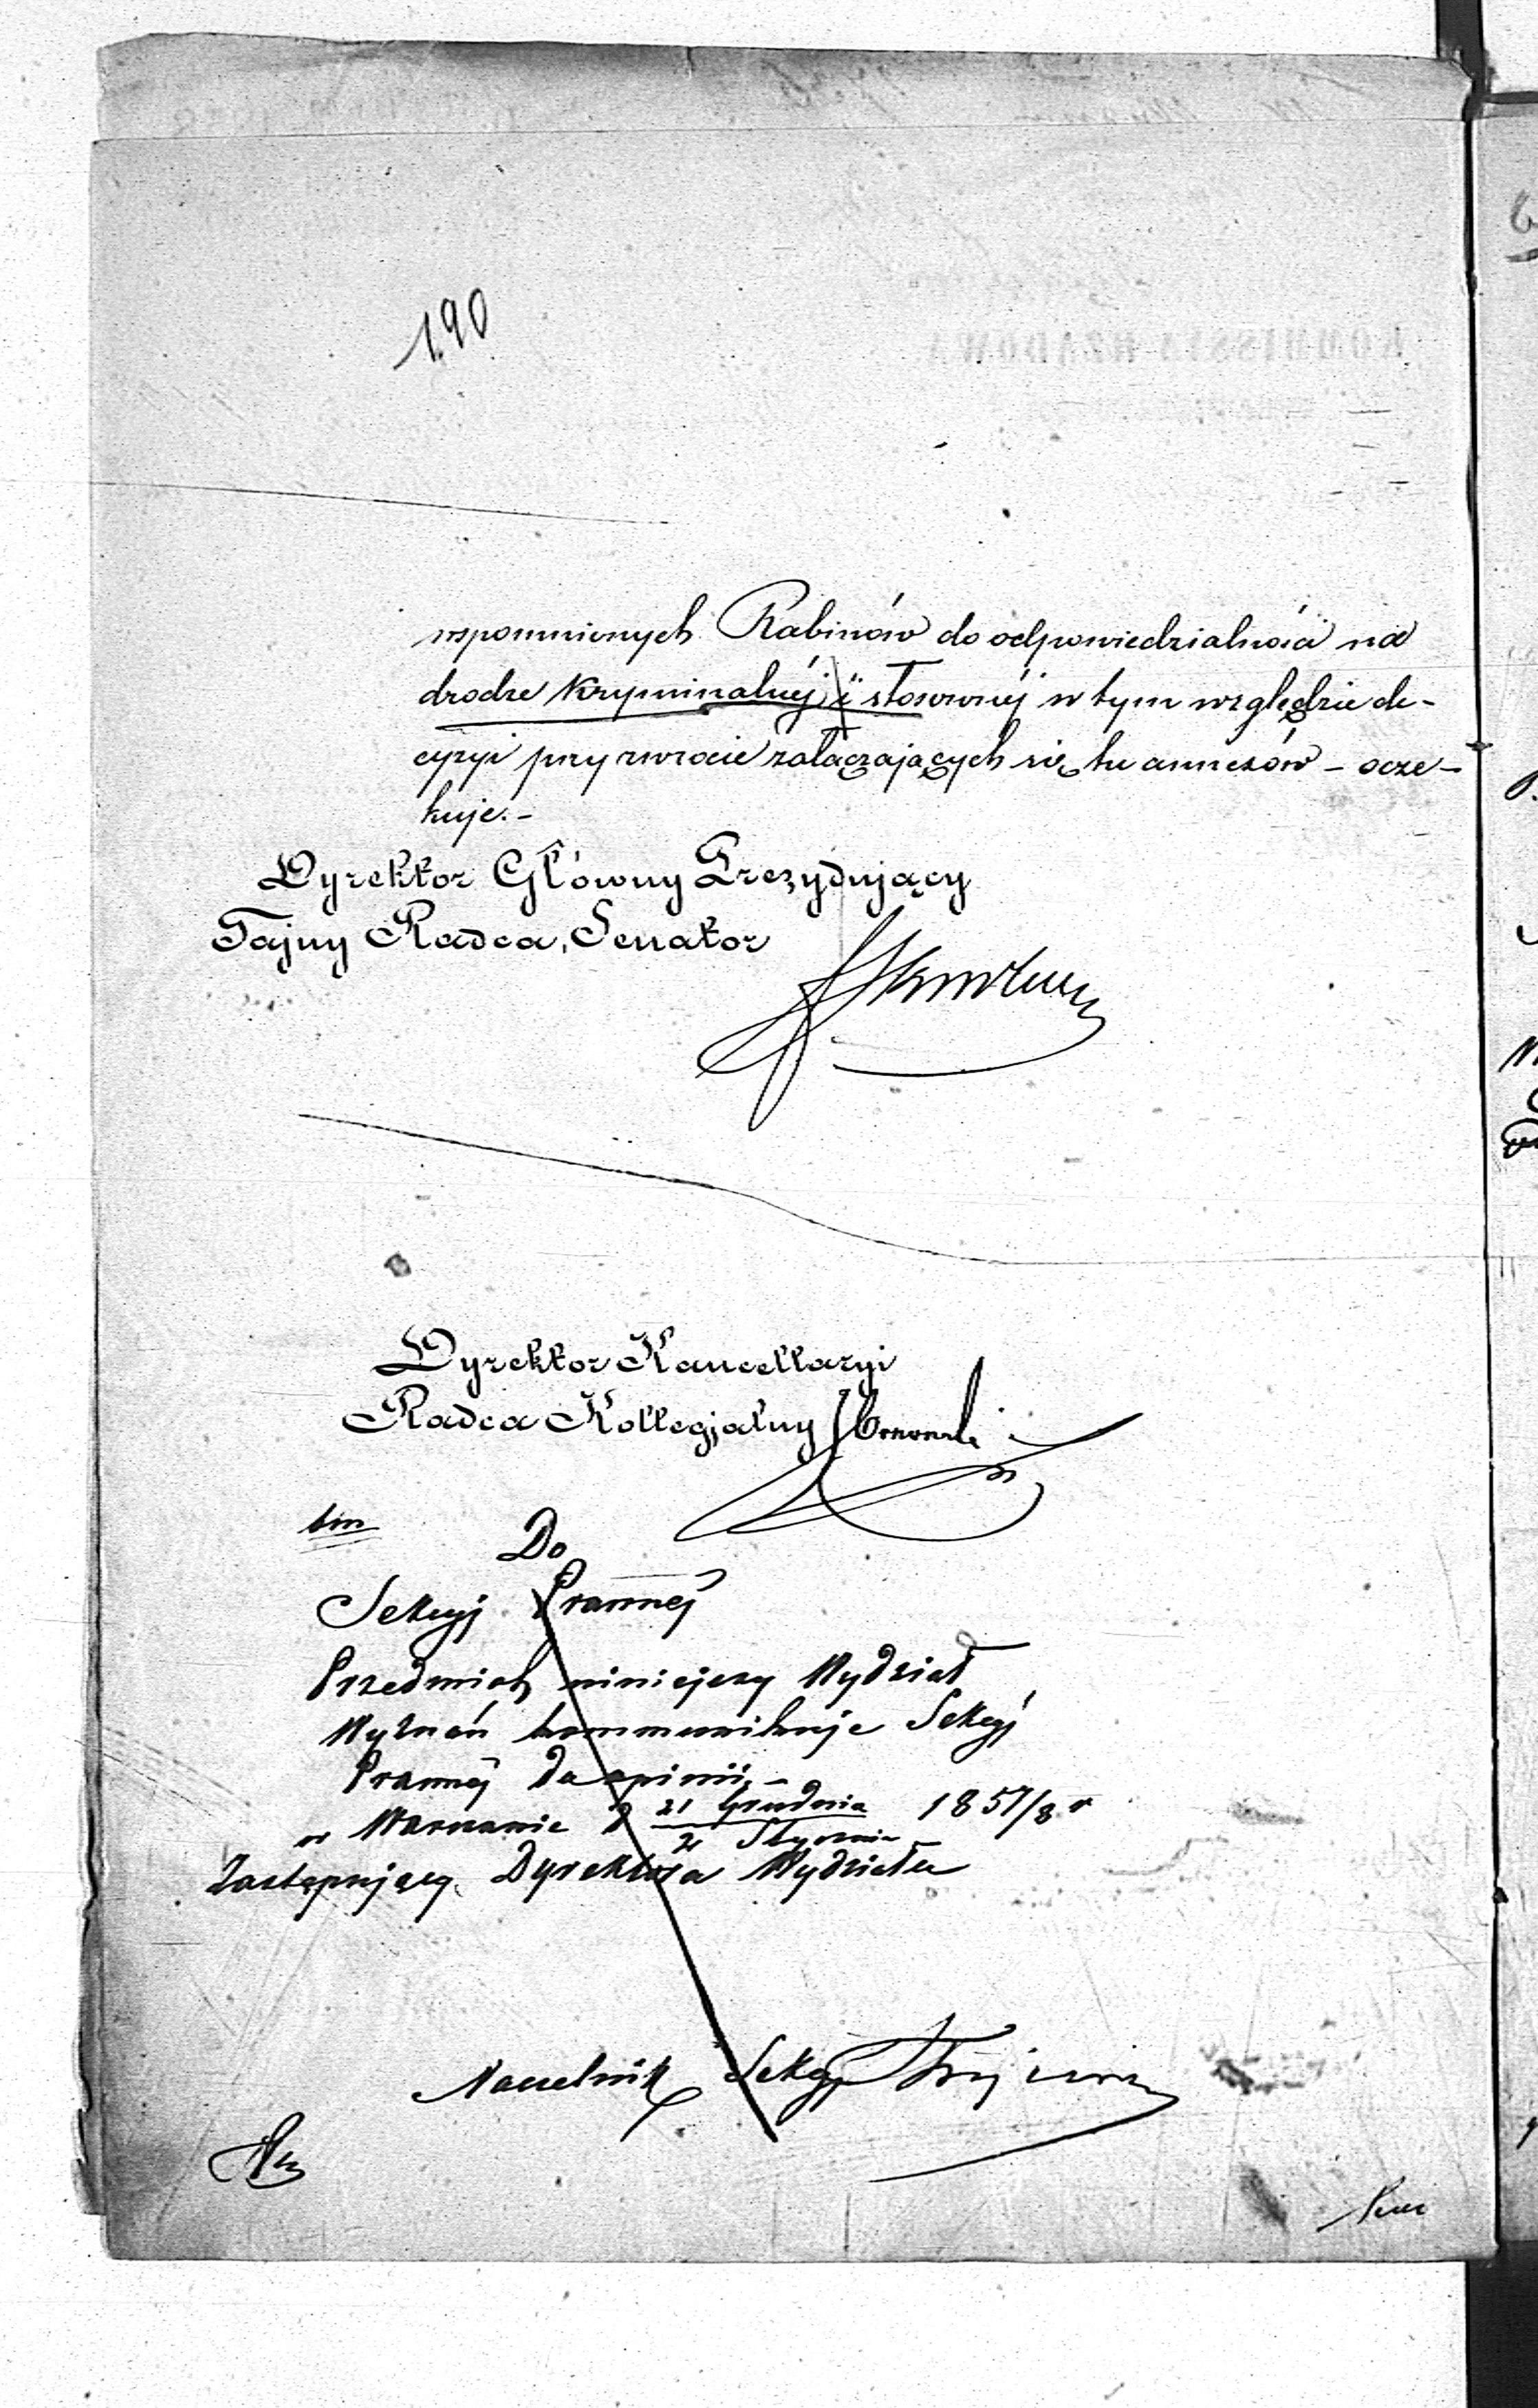 190
wspomnionych Rabinów do odpowiedzialności na
drodze Kryminalnéj, i stosownéj w tym względzie de-
cyzyi przy zwrocie załączających się tu annexów – ocze-
kuje. –
Dyrektor Główny Prezydujący
Tajny Radca, Senator
Dyrektor Kancellaryi
Radca Kollegjalny
Do
Sekcyj Prawnéj
Przedmiot niniejszy Wydział
Wyznań kommunikuje Sekcyj
Prawnéj do opinii, –
w Warszawie d 21 Grudnia 1857/8 r
2 Stycznia
Zastępujący Dyrektora Wydziału
Naczelnik Sekcyi
KOMMISSYA RZĄDOWA